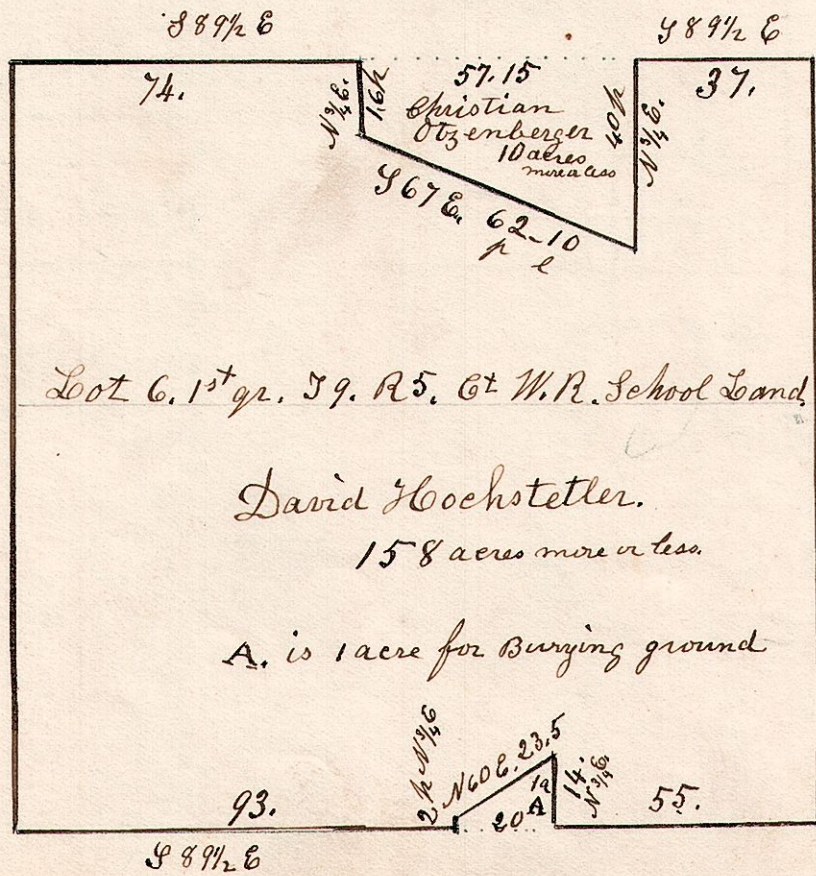 S 89½ E
S 89½ E
74.
N ¾ E.
16 p
57.15
Christian
Otzenberger
10 acres
more or less
40 p
N ¾ E.
37.
S 67 E. 62-10
p l
Lot 6. 1st gr. T9. R5. Ct W.R. School Land
David Hochstetler.
158 acres more or less.
A. is 1 acre for Burying ground
93.
2 p N ¾ E
N 60 E. 23.5
1a
A
20
14.
N ¾ E.
55.
S 89½ E